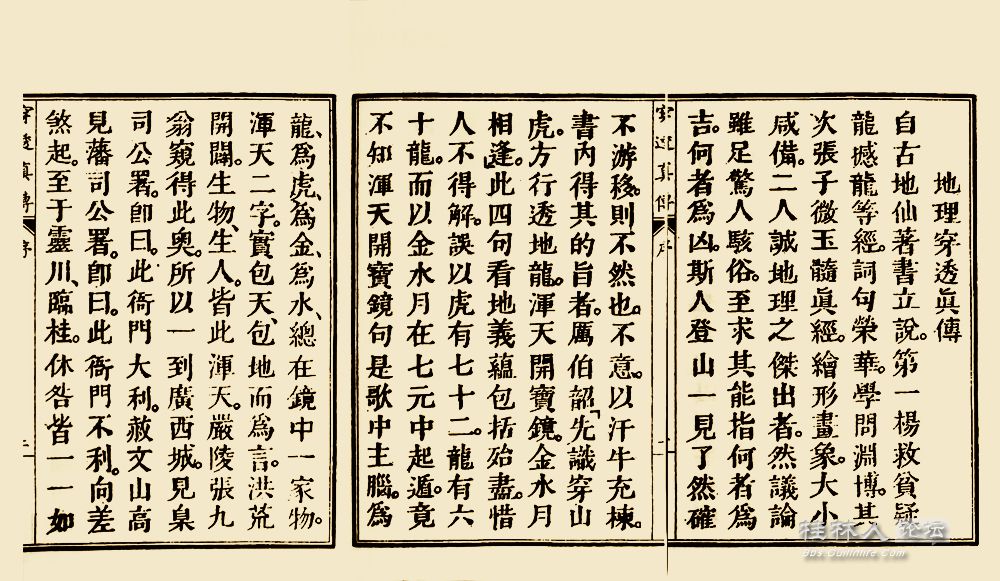 地理穿透眞傳
自古地仙著書立說。第一楊救貧疑
龍撼龍等經。詞句榮華。學問淵博。其
次張子微玉髓眞經。繪形畫象。大小
咸備。二人誠地理之傑出者。然議論
雖足驚人駭俗。至求其能指何者爲
吉。何者爲凶。斯人登山一見了然確
穿透眞傳 序 一
不游移。則不然也。不意。以汗牛充棟。
書內得其的旨者。厲伯韶「先識穿山
虎。方行透地龍。渾天開寶鏡。金水月
相逢」。此四句看地義蘊包括殆盡。惜
人不得解。誤以虎有七十二。龍有六
十龍。而以金水月在七元中起遁。竟
不知渾天開寶鏡句是歌中主腦。爲
龍、爲虎、爲金、爲水、總在鏡中一家物。
渾天二字。實包天、包地而爲言。洪荒
開闢。生物、生人。皆此渾天。嚴陵張九
翁窺得此奧。所以一到廣西城。見臬
司公署。卽曰。此衙門大利。赦文山高
見藩司公署。卽曰。此衙門不利。向差
煞起。至于靈川、臨桂。休咎皆一一如
穿透眞傳 序 二
桂林人论坛
bbs.Guilinlife.Com